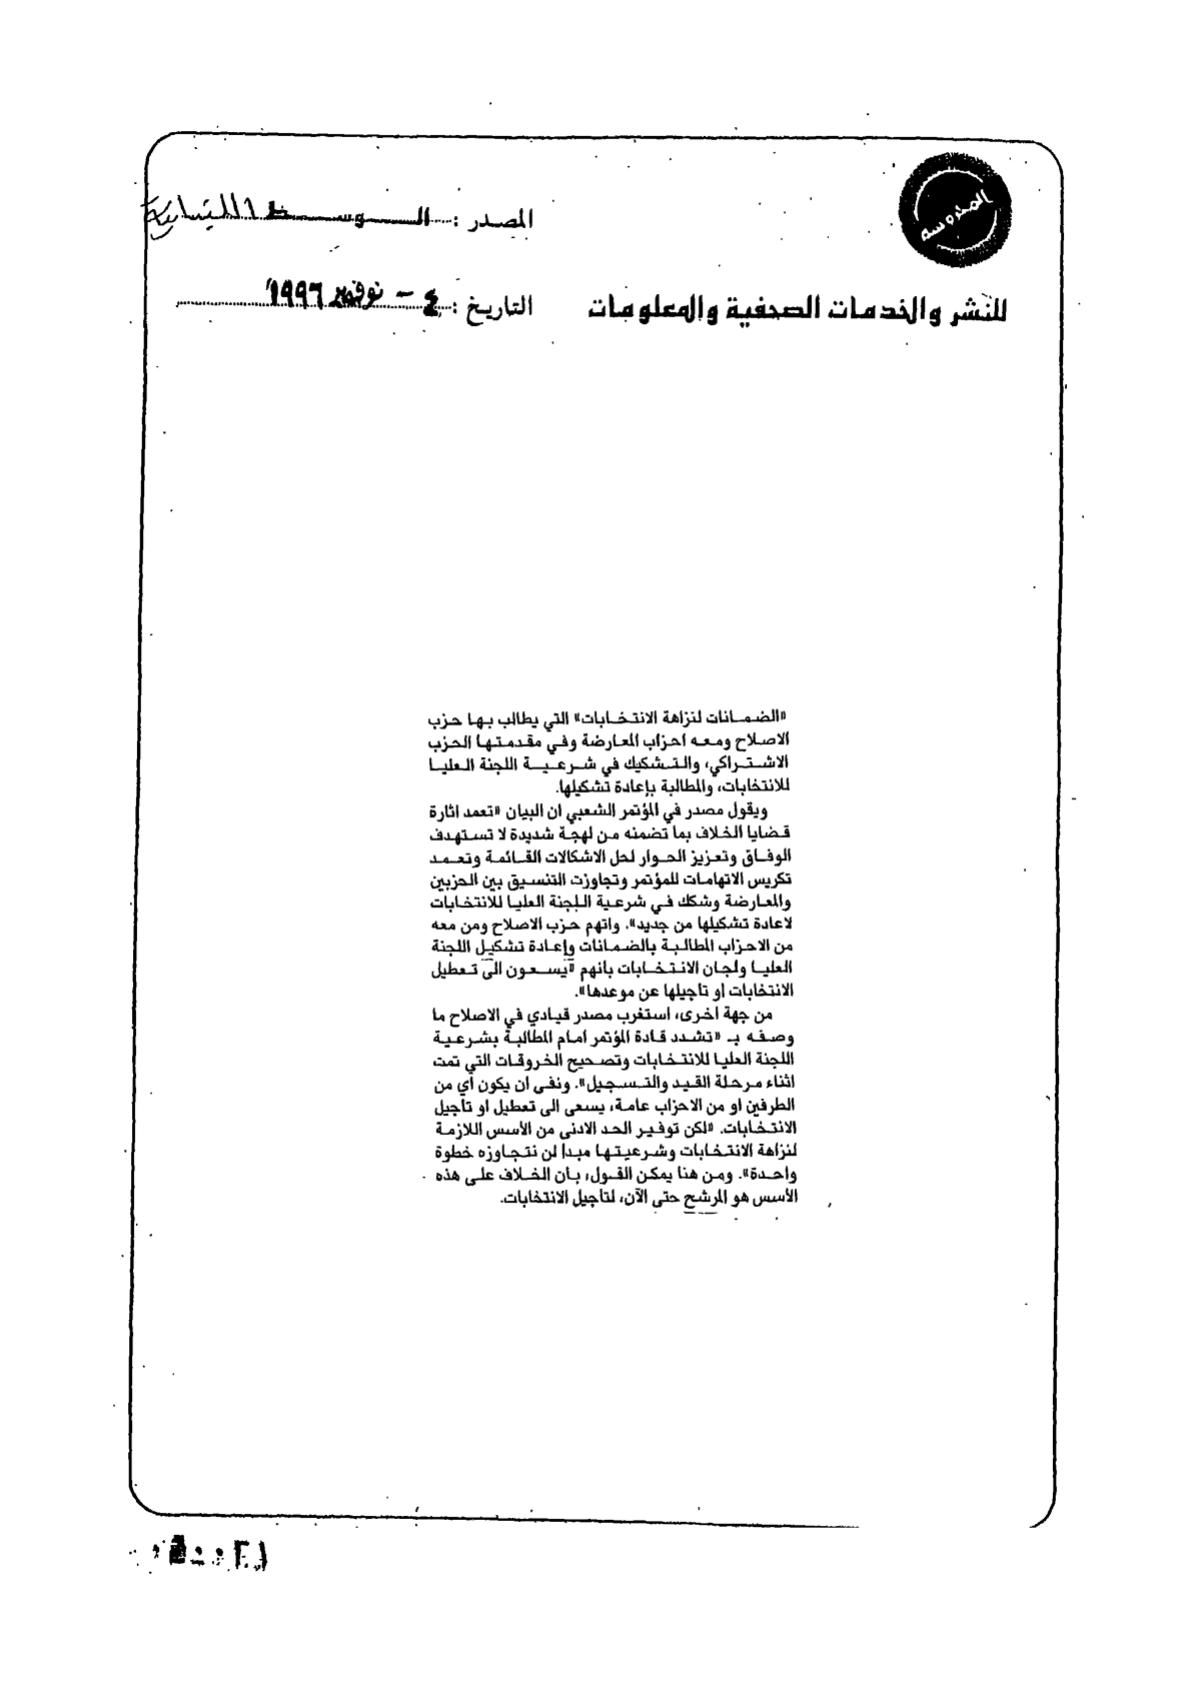 المحروسة
المصدر : الوسط اللبنانية
للنشر والخدمات الصحفية والمعلومات
التاريخ : ٤ - نوفمبر ١٩٩٦
«الضمانات لنزاهة الانتخابات» التي يطالب بها حزب
الاصلاح ومعه احزاب المعارضة وفي مقدمتها الحزب
الاشتراكي، والتشكيك في شرعية اللجنة العليا
للانتخابات، والمطالبة بإعادة تشكيلها.
ويقول مصدر في المؤتمر الشعبي ان البيان «تعمد اثارة
قضايا الخلاف بما تضمنه من لهجة شديدة لا تستهدف
الوفاق وتعزيز الحوار لحل الاشكالات القائمة وتعمد
تكريس الاتهامات للمؤتمر وتجاوزت التنسيق بين الحزبين
والمعارضة وشكك في شرعية اللجنة العليا للانتخابات
لاعادة تشكيلها من جديد». واتهم حزب الاصلاح ومن معه
من الاحزاب المطالبة بالضمانات وإعادة تشكيل اللجنة
العليا ولجان الانتخابات بانهم «يسعون الى تعطيل
الانتخابات او تاجيلها عن موعدها».
من جهة اخرى، استغرب مصدر قيادي في الاصلاح ما
وصفه بـ «تشدد قادة المؤتمر امام المطالبة بشرعية
اللجنة العليا للانتخابات وتصحيح الخروقات التي تمت
اثناء مرحلة القيد والتسجيل». ونفى ان يكون أي من
الطرفين او من الاحزاب عامة، يسعى الى تعطيل او تاجيل
الانتخابات. «لكن توفير الحد الادنى من الأسس اللازمة
لنزاهة الانتخابات وشرعيتها مبدا لن نتجاوزه خطوة
واحدة». ومن هنا يمكن القول، بان الخلاف على هذه
الأسس هو المرشح حتى الآن، لتاجيل الانتخابات.